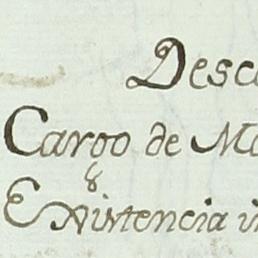 Desc
Cargo de Mo
Existencia i